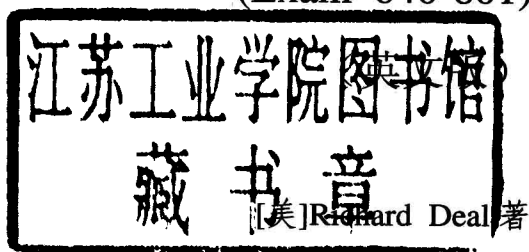 (Exam 640-801)
江苏工业学院图书馆
(英文版)
藏书章
[美]Richard Deal 著